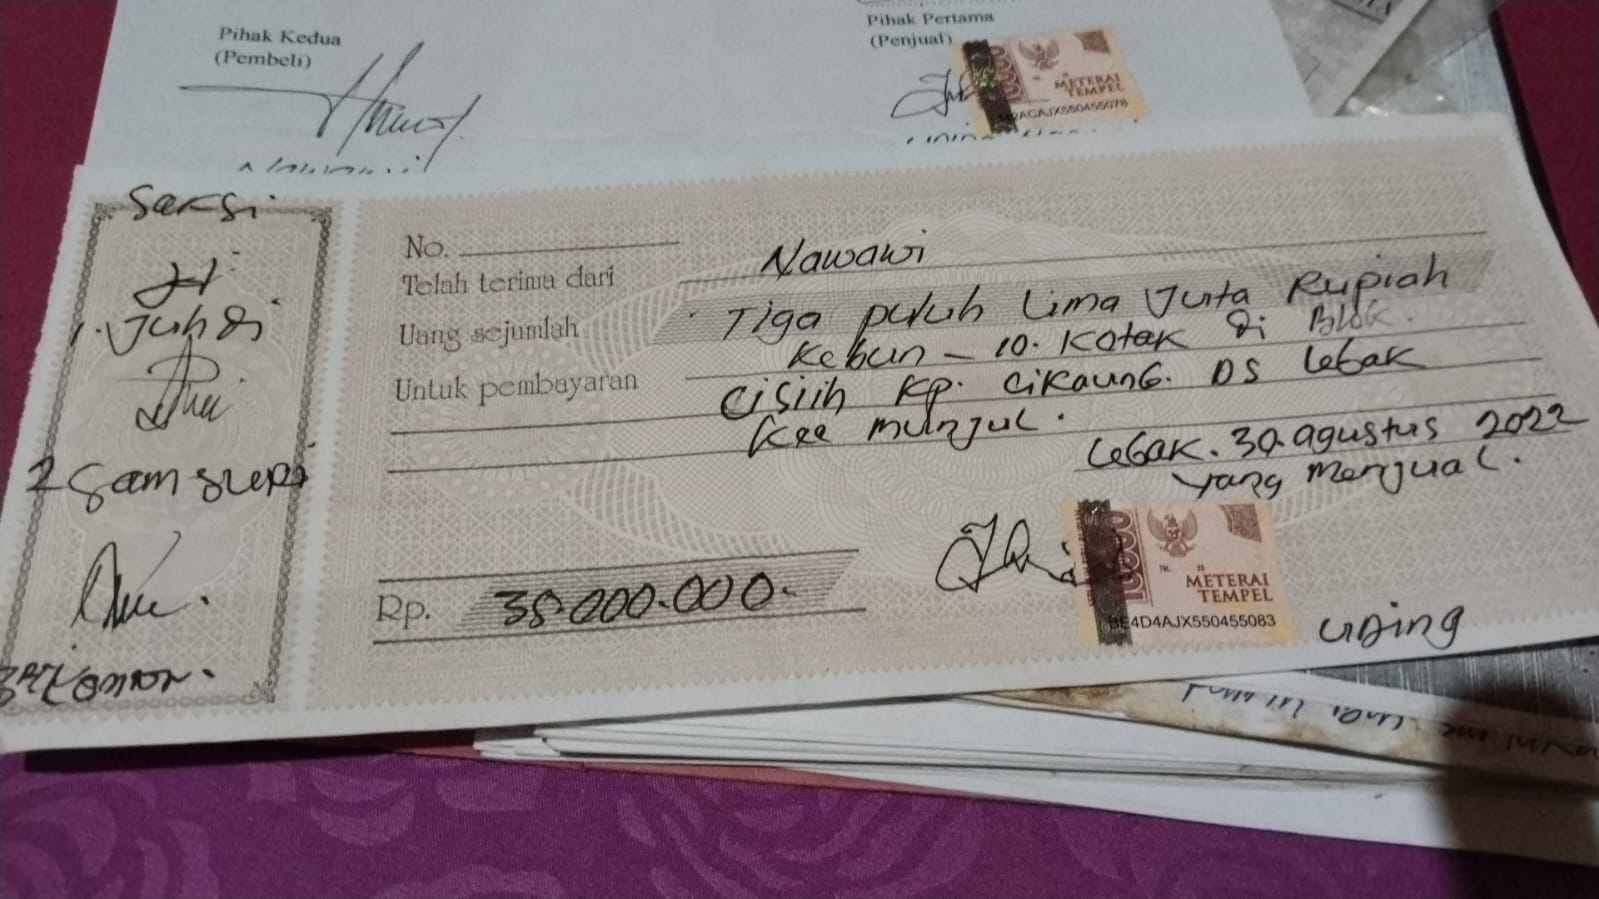 Pihak Kedua
(Pembeli)
Pihak Pertama
(Penjual)
METERAI
TEMPEL
ACAJX550455078
Saksi
1. Juhdi
2 Samsuri
No.
Telah terima dari Nawawi
Uang sejumlah Tiga puluh Lima Juta Rupiah
Untuk pembayaran Kebun - 10. Kotak di Blok.
Cisiih Kp. Cikaung. DS Lebak
Kec munjul.
Lebak. 30. agustus 2022
Yang menjual.
Rp. 35.000.000.
10000
METERAI
TEMPEL
BE4D4AJX550455083
UDing